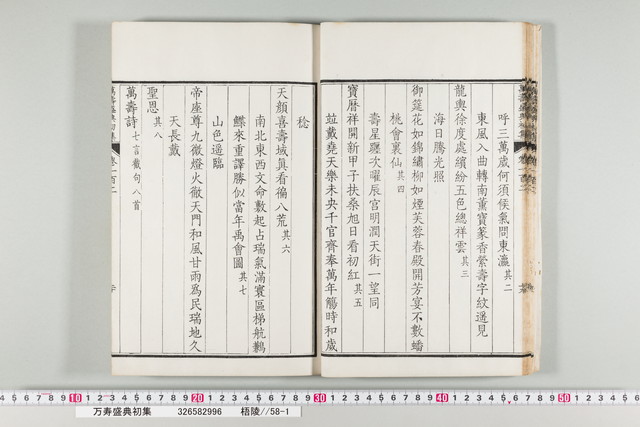 呼三萬歲何須候氣問東瀛其二
東風入曲轉南薰寶篆香縈壽字紋遙見
龍輿徐度處繽紛五色總祥雲其三
海日騰光照
御筵花如錦繡柳如煙芙蓉春殿開芳宴不數蟠
桃會裏仙其四
壽星躔次曜辰宮明潤天街一望同
寶曆祥開新甲子扶桑旭日看初紅其五
竝戴堯天樂未央千官齊奉萬年觴時和歲
稔
天顏喜壽域真看徧八荒其六
南北東西文命敷起占瑞氣滿寰區梯航鶼
鰈來重譯勝似當年禹會圖其七
山色遥臨
帝座尊九微燈火徹天門和風甘雨為民瑞地久
天長戴
聖恩其八
萬壽詩七言截句八首
萬壽盛典初集
卷一百二
万寿盛典初集 326582996 梧陵//58-1
10 20 30 40 50